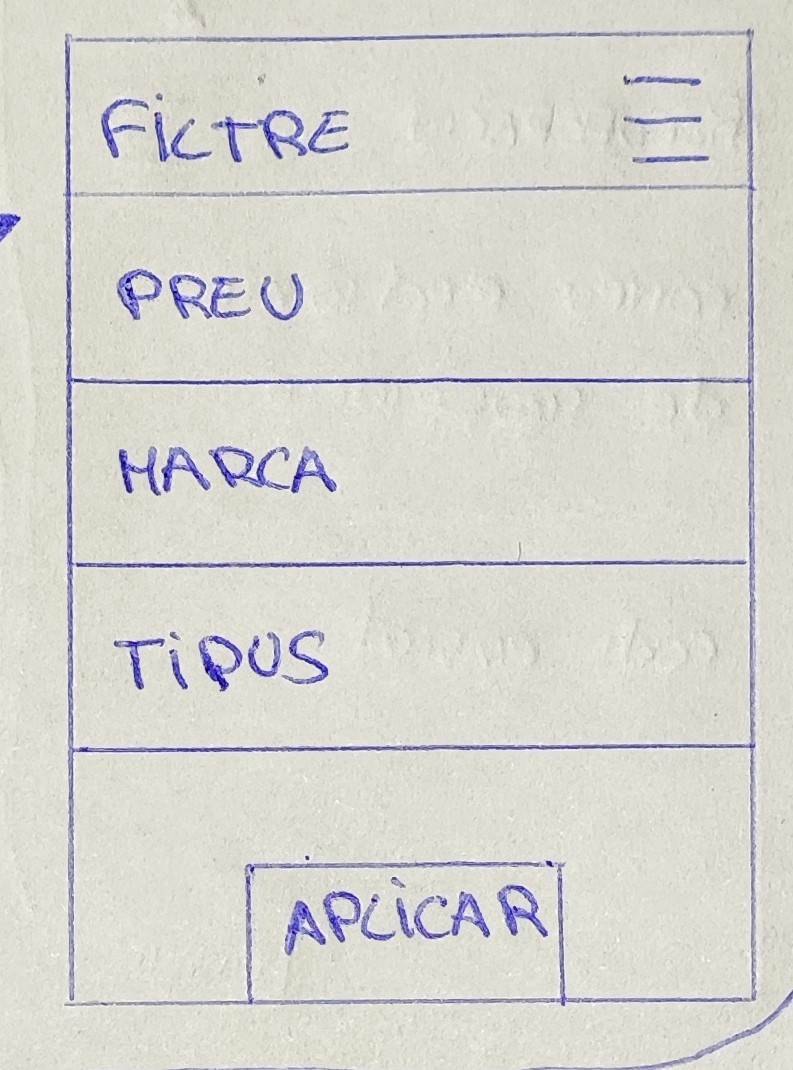 FiLTRE
PREU
MARCA
TiPUS
APLiCAR